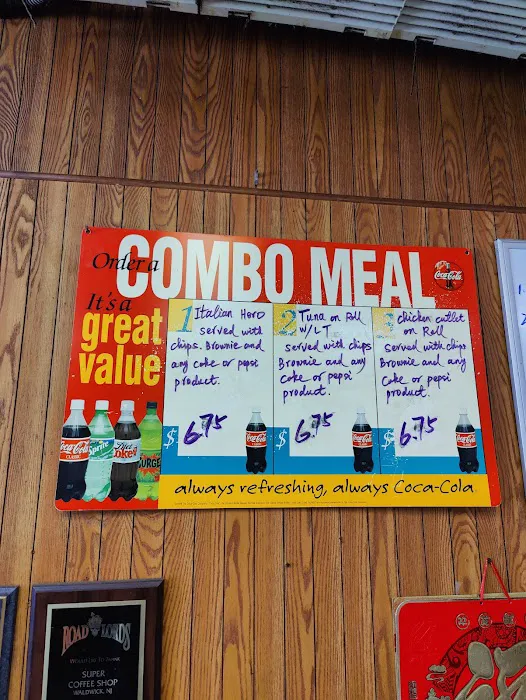 Order a
COMBO MEAL
Coca-Cola
It's a
great
value
1 Italian Hero
served with
chips. Brownie and
any coke or pepsi
product.
$ 6.75
2 Tuna on Roll
W/LT
served with chips
Brownie and any
coke or pepsi
product.
$ 6.75
3 chicken cutlet
on Roll
served with chips
Brownie and any
coke or pepsi
product.
$ 6.75
Coca-Cola
CLASSIC
Sprite
Diet
Coke
SURGE
always refreshing, always Coca-Cola
ROAD LORDS
SUPER
COFFEE SHOP
WALDWICK, NJ